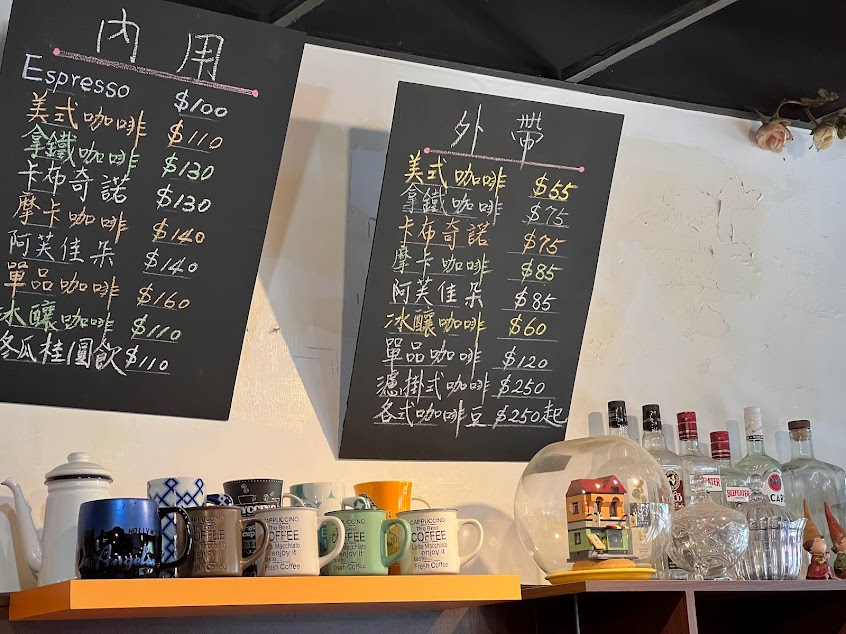 內用
Espresso $100
美式咖啡 $110
拿鐵咖啡 $130
卡布奇諾 $130
摩卡咖啡 $140
阿芙佳朵 $140
單品咖啡 $160
冰釀咖啡 $110
冬瓜桂圓飲 $110
外帶
美式咖啡 $55
拿鐵咖啡 $75
卡布奇諾 $75
摩卡咖啡 $85
阿芙佳朵 $85
冰釀咖啡 $60
單品咖啡 $120
濾掛式咖啡 $250
各式咖啡豆 $250起
HOLLYW
Angels
CAPPUCCINO
The Best
COFFEE
Latte Macchiato
enjoy it
Fresh Coffee
CAPPUCCINO
The Best
COFFEE
Latte Macchiato
enjoy it
Fresh Coffee
CAPPUCCINO
The Best
COFFEE
Latte Macchiato
enjoy it
Fresh Coffee
CAPPUCCINO
The Best
COFFEE
Latte Macchiato
enjoy it
Fresh Coffee
BEEFEATER